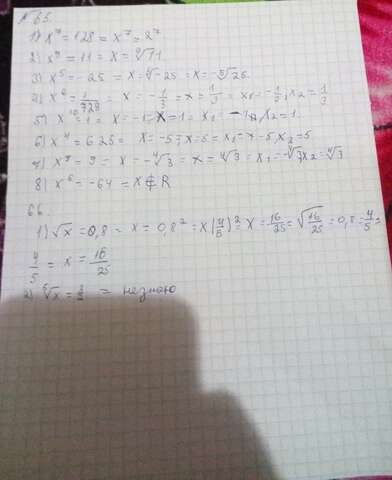 № 65.
1) x⁷ = 128 = x⁷ = 2⁷
2) x⁹ = 11 = x = ⁹√11.
3) x⁵ = -25 = x = ⁵√-25 = x = -⁵√25.
4) x⁶ = 1/729 = x = -1/3 = x = 1/3 = x₁ = -1/3, x₂ = 1/3
5) x¹⁰ = 1 = x = -1 = x = 1 = x₁ = -1, x₂ = 1.
6) x⁴ = 625 = x = -5; x = 5 = x₁ = -5 x₂ = 5
8) x⁶ = -64 = x ∉ R
66.
1) √x = 0,8 = x = 0,8² = x (4/5)² = x = 16/25 = √16/25 = 0,8 = 4/5 =
4/5 = x = 16/25
= незнаю